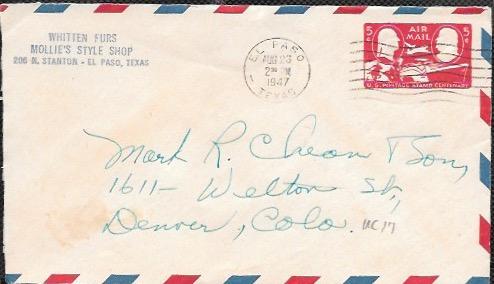 WHITTEN FURS
MOLLIE'S STYLE SHOP
206 N. STANTON - EL PASO, TEXAS
EL PASO
AUG 23
2 PM
1947
TEXAS
5¢ AIR MAIL 5¢
U.S. POSTAGE STAMP CENTENARY
Mark R. & Son,
1611- Welton St.,
Denver, Colo.
UC17